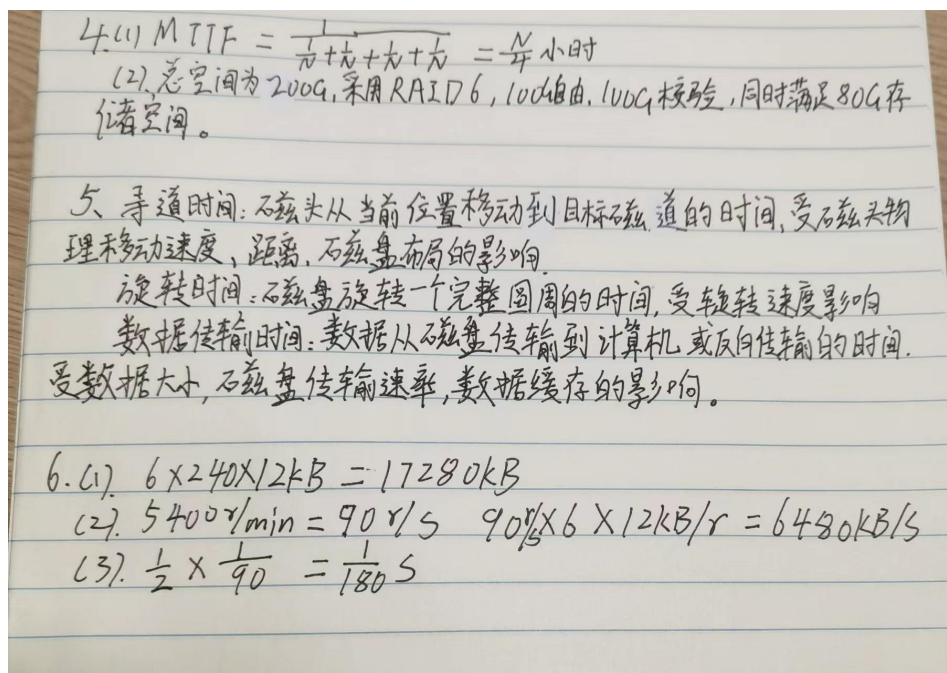 4.(1) MTTF = 1/(1/N + 1/N + 1/N + 1/N) = N/4 小时
(2). 总空间为200G, 采用RAID6, 100G自由, 100G校验, 同时满足80G存
储空间。
5、寻道时间: 磁头从当前位置移动到目标磁道的时间, 受磁头物
理移动速度、距离、磁盘布局的影响.
旋转时间: 磁盘旋转一个完整圆周的时间, 受旋转速度影响
数据传输时间: 数据从磁盘传输到计算机或反向传输的时间.
受数据大小, 磁盘传输速率, 数据缓存的影响。
6.(1). 6×240×12kB = 17280kB
(2). 5400r/min = 90r/s 90r/s×6×12kB/r = 6480kB/s
(3). 1/2 × 1/90 = 1/180 s